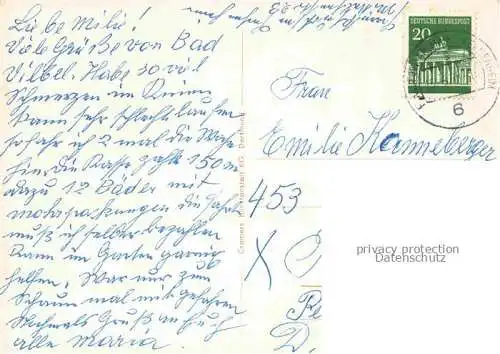 Liebe Mili!
Viele Grüße von Bad
Vilbel. Habe so viel
Schmerzen im Knien
kann sehr schlecht laufen
so fahr ich 2 mal die Woche
hin. Die Kasse zahlt 150 M
dazu 12 Bäder mit
moorpackungen die Fahrt
muß ich selber bezahlen
Kann im Garten garnix
helfen. War nur zum
Schaun mal mit gefahren
Nochmals Gruß an Euch
alle Maria.
DEUTSCHE BUNDESPOST
20
6
Frau
Emilie Kanneberger
453
X
D.
Cramers Kunstanstalt KG. Dortmund
privacy protection
Datenschutz